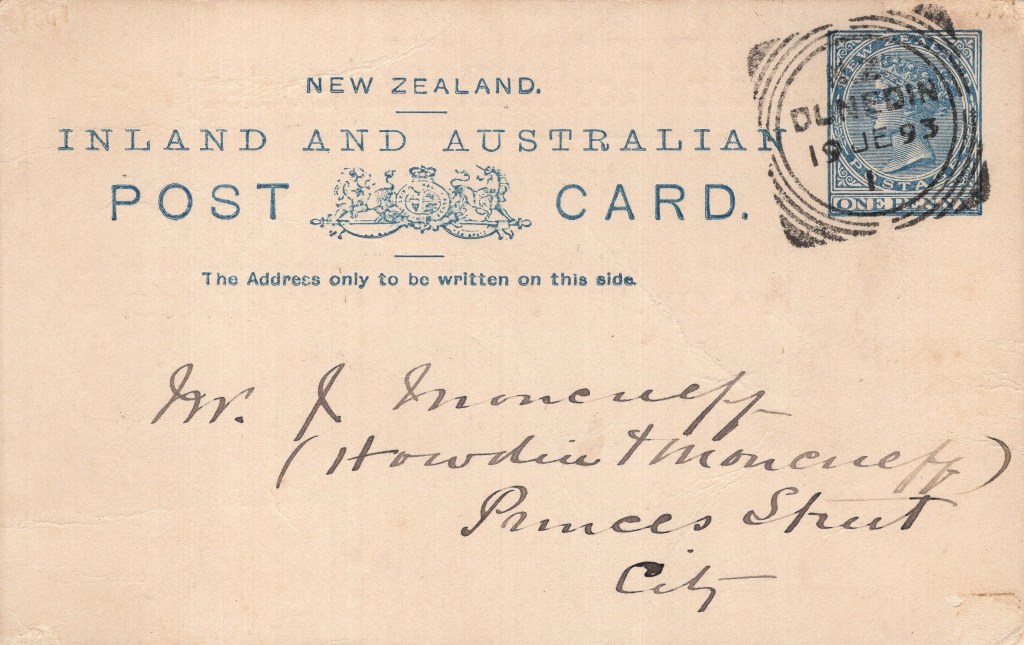 NEW ZEALAND.
INLAND AND AUSTRALIAN
POST CARD.
The Address only to be written on this side.
NEW ZEALAND
POSTAGE
ONE PENNY
DUNEDIN
19 JE 93
1
Mr. J Moncrieff
(Howdin & Moncrieff)
Princes Street
City